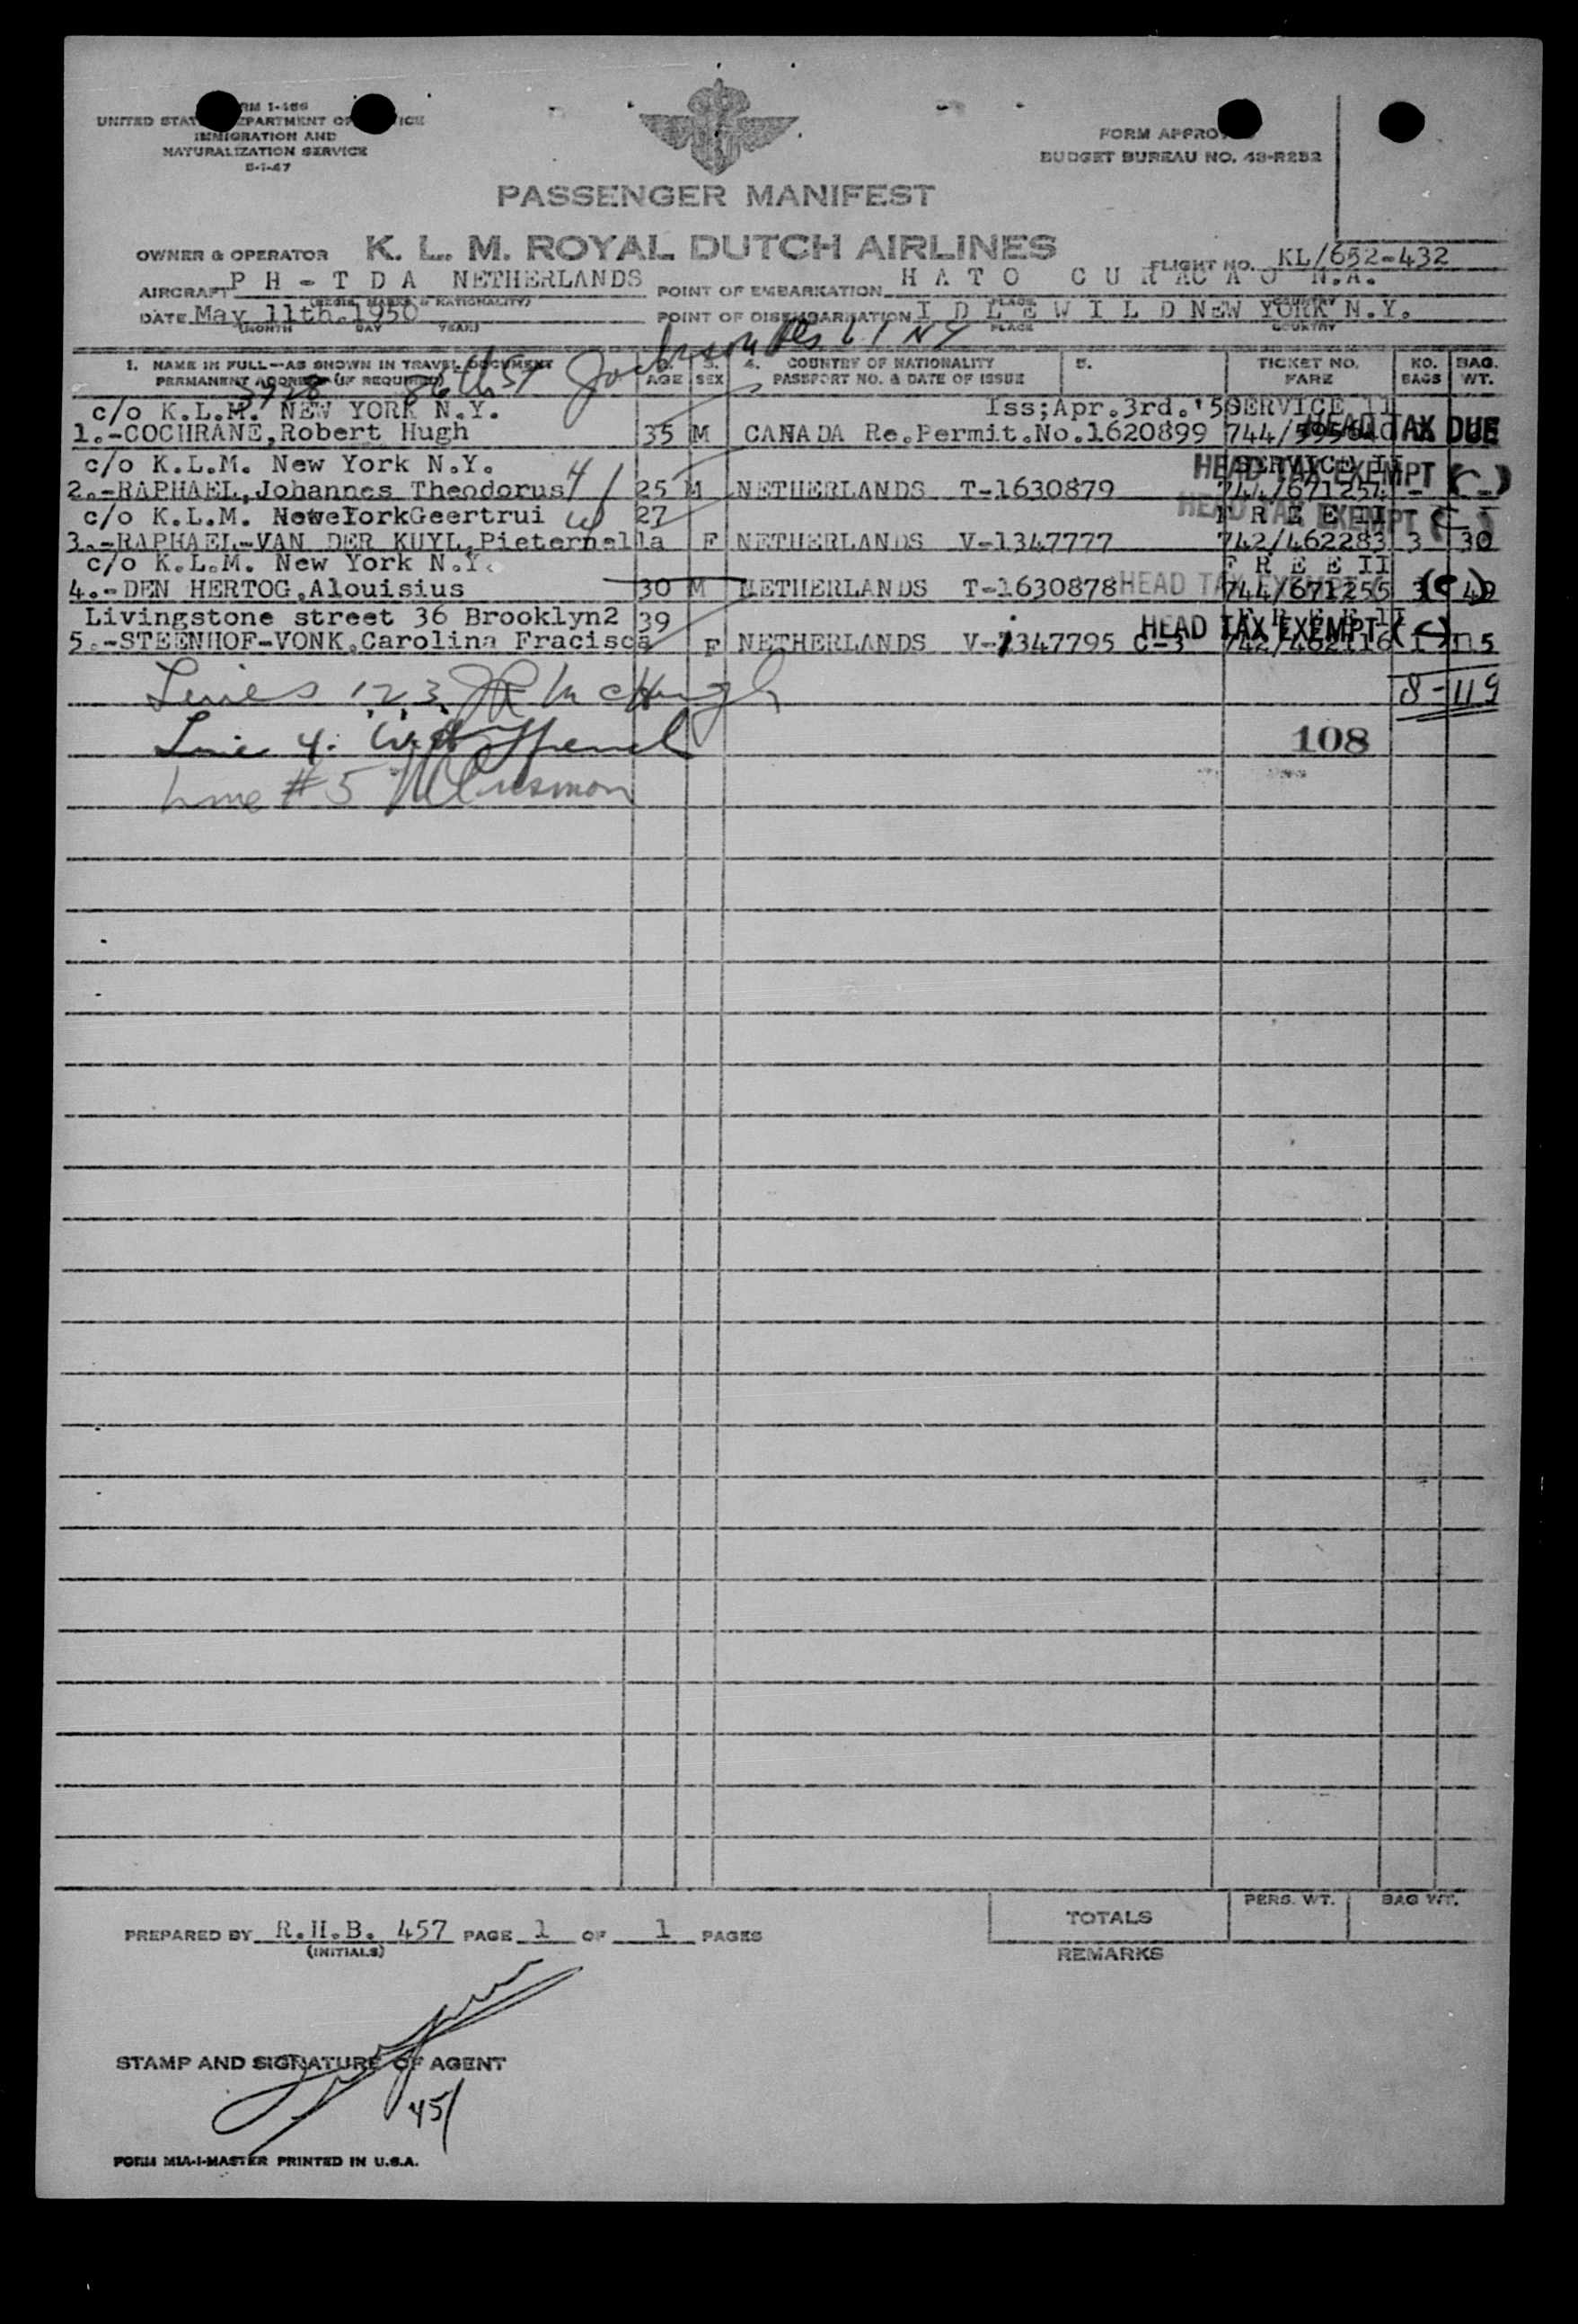 FORM I-466
UNITED STATES DEPARTMENT OF JUSTICE
IMMIGRATION AND
NATURALIZATION SERVICE
5-1-47
FORM APPROVED
BUDGET BUREAU NO. 43-R252
PASSENGER MANIFEST
OWNER & OPERATOR K. L. M. ROYAL DUTCH AIRLINES
FLIGHT NO. KL/652-432
AIRCRAFT P H - T D A NETHERLANDS POINT OF EMBARKATION H A T O C U R A C A O N.A.
(REGIS. MARKS & NATIONALITY) PLACE COUNTRY
DATE May 11th.1950 POINT OF DISEMBARKATION I D L E W I L D NEW YORK N.Y.
(MONTH DAY YEAR) PLACE COUNTRY
3728 86th St Jackson Hts L I NY
1. NAME IN FULL—AS SHOWN IN TRAVEL DOCUMENT 2. 3. 4. COUNTRY OF NATIONALITY 5. TICKET NO. NO. BAG.
PERMANENT ADDRESS (IF REQUIRED) AGE SEX PASSPORT NO. & DATE OF ISSUE FARE BAGS WT.
c/o K.L.M. NEW YORK N.Y. Iss;Apr.3rd.'50 SERVICE 11
1.-COCHRANE,Robert Hugh 35 M CANADA Re.Permit.No.1620899 744/ HEAD TAX DUE
c/o K.L.M. New York N.Y. 4 SERVICE II HEAD TAX EXEMPT
2.-RAPHAEL,Johannes Theodorus 25 M NETHERLANDS T-1630879 744/671254 - -
HEAD TAX EXEMPT
c/o K.L.M. New York Geertrui 27 F R E E II
3.-RAPHAEL-VAN DER KUYL,Pieternella F NETHERLANDS V-1347777 742/462283 3 30
c/o K.L.M. New York N.Y. F R E E II
4.-DEN HERTOG,Alouisius 30 M NETHERLANDS T-1630878 HEAD TAX EXEMPT 744/671255 (C) 42
Livingstone street 36 Brooklyn2 39 F R E E II HEAD TAX EXEMPT
5.-STEENHOF-VONK,Carolina Fracisca F NETHERLANDS V-1347795 C-3 742/462116
Lines 1.2.3. J R McHugh 8-119
Line 4. 108
Line #5
TOTALS PERS. WT. BAG WT.
PREPARED BY R.H.B. 457 PAGE 1 OF 1 PAGES
(INITIALS)
REMARKS
STAMP AND SIGNATURE OF AGENT
451
FORM MIA-1-MASTER PRINTED IN U.S.A.